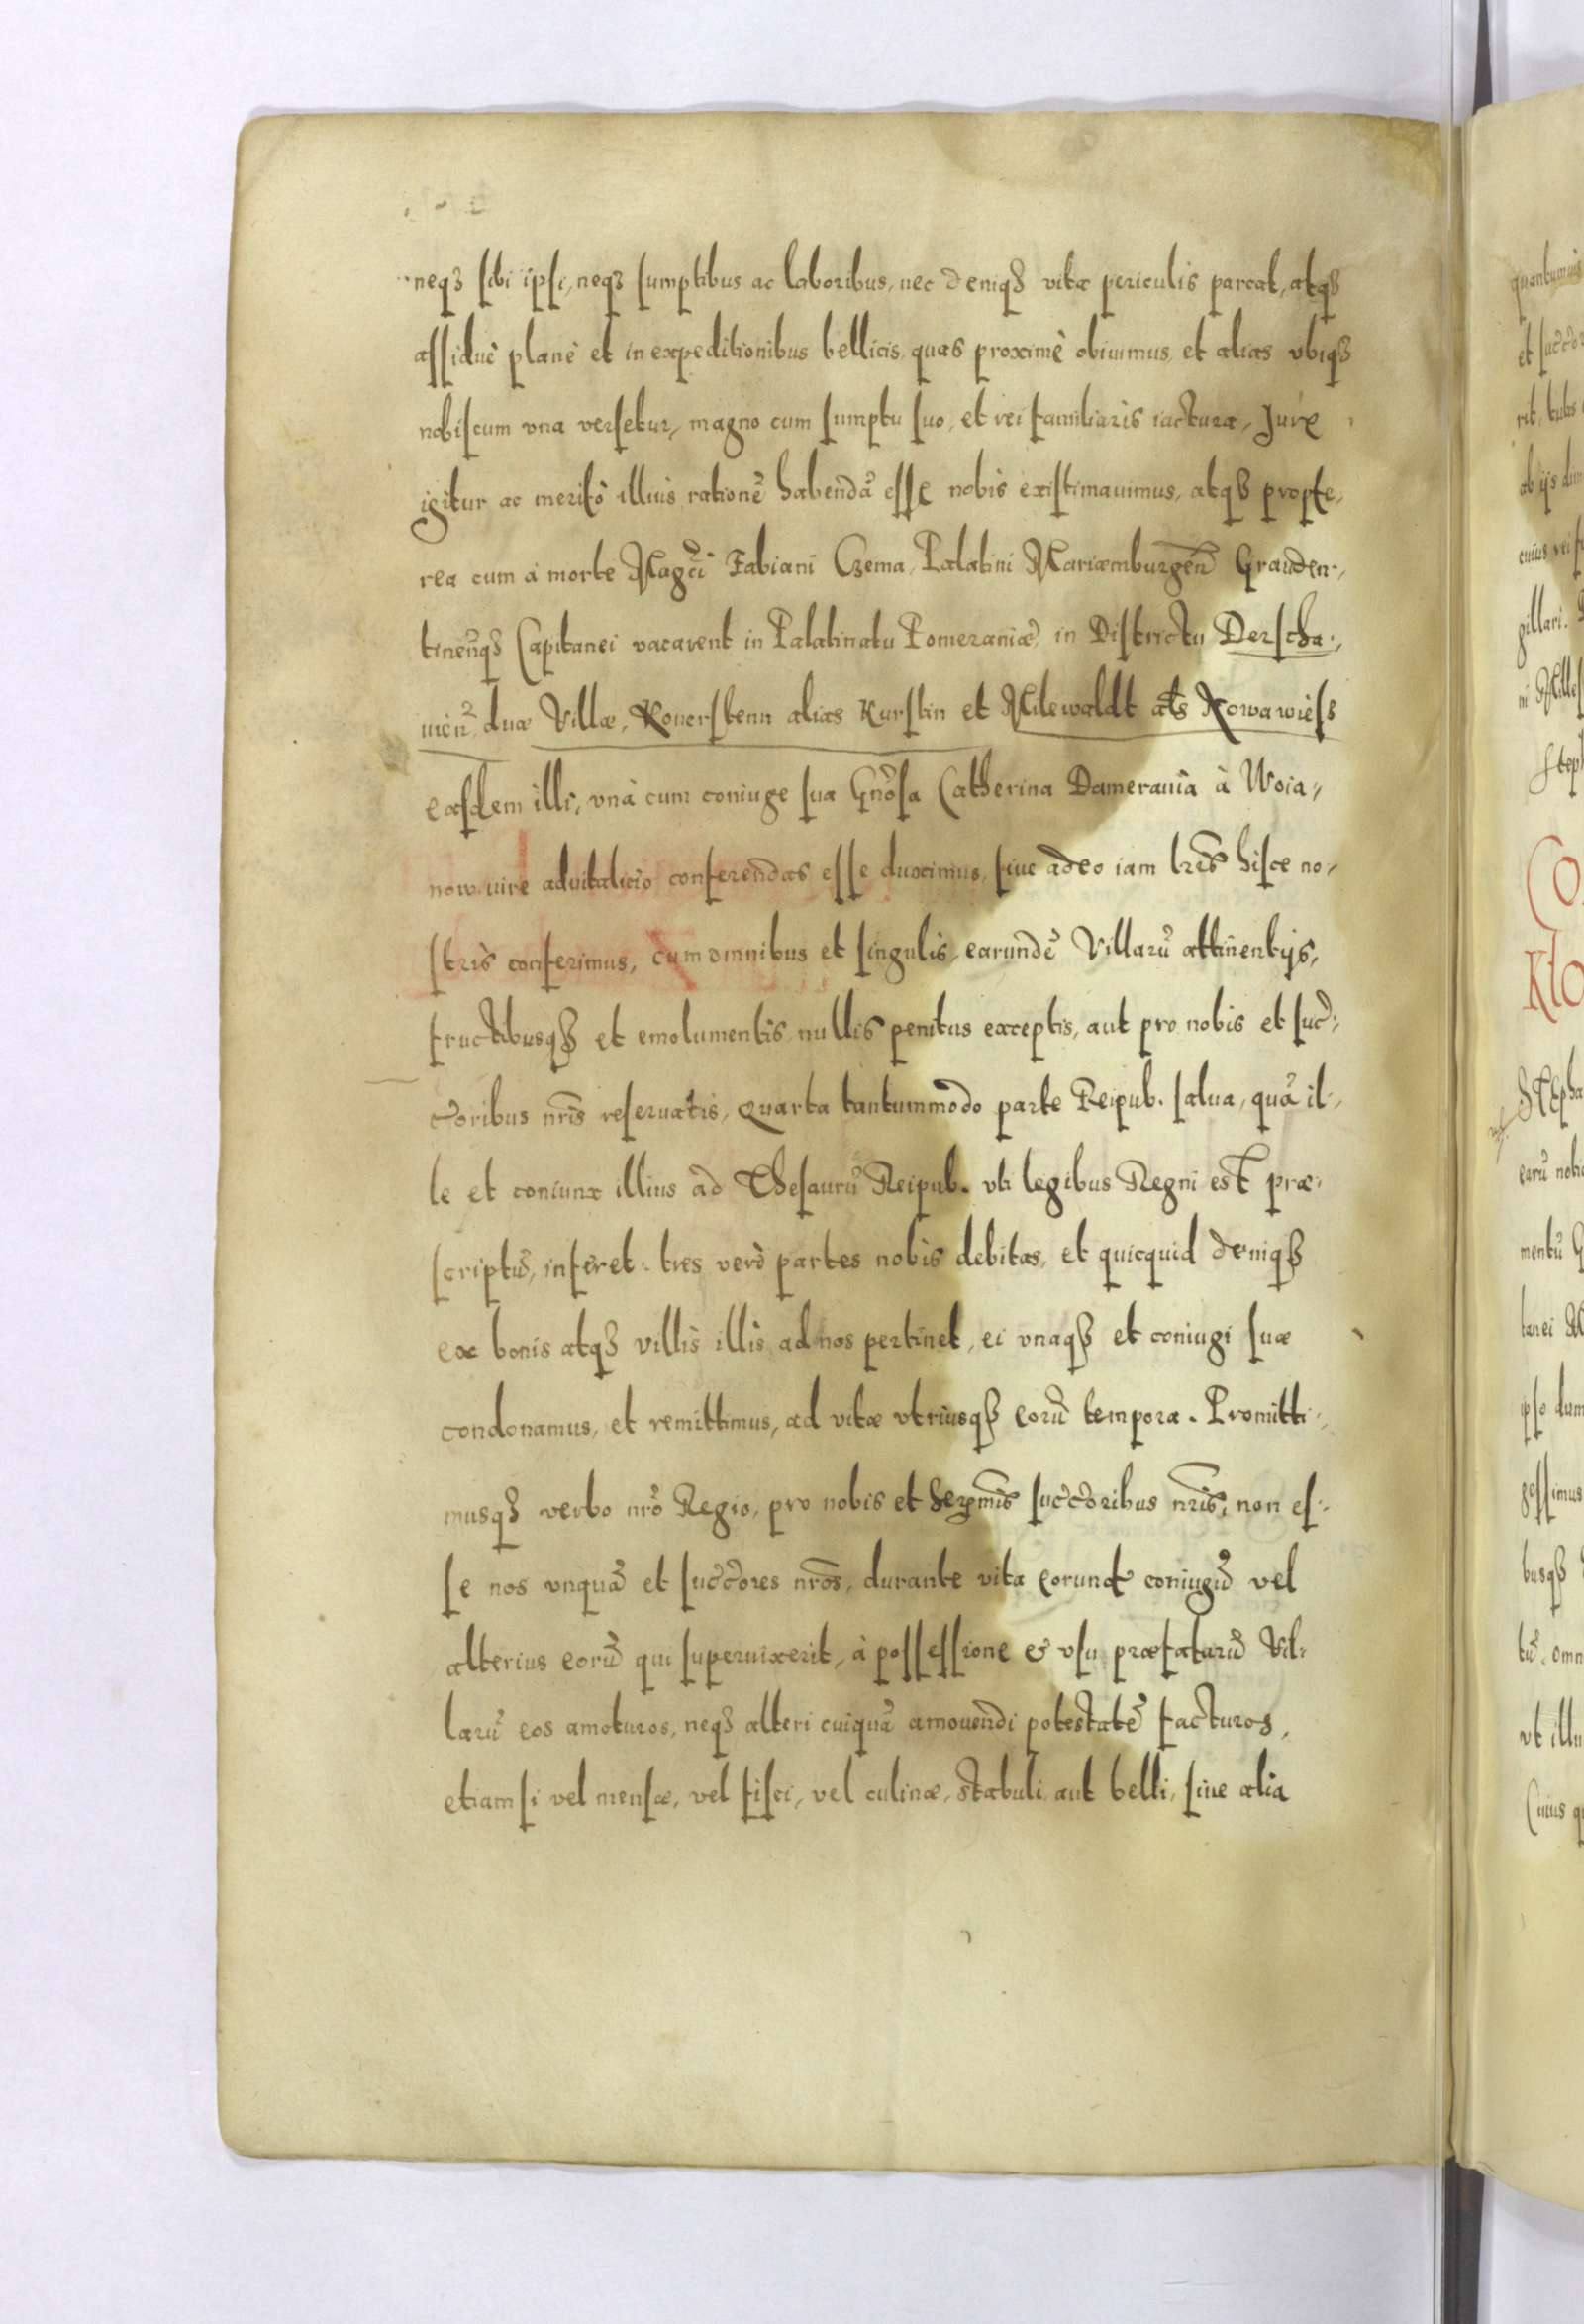 neqꝫ sibi ipsi, neqꝫ sumptibus ac laboribus, nec deniqꝫ vitæ periculis parcat, atqꝫ
assiduè planè et in expeditionibus bellicis, quas proximè obiuimus, et alias vbiqꝫ
nobiscum vna versetur, magno cum sumptu suo, et rei familiaris iactura, Jure
igitur ac meritò illius rationē habendā esse nobis existimauimus, atqꝫ propte,
rea cum à morte Magci Fabiani Czema, Palatini Mariæmburgeñ Grauden-,
tineñqꝫ Capitanei vacarent in Palatinatu Pomeraniæ, in Districtu Derscha-,
uieñ, duæ Villæ, Kouerstenn alias Kurstin et Milewaldt als Nowawiess
easdem illi, vnà cum coniuge sua Gnosa Catherina Damerauia à Woia,
now iure aduitalicio conferendas esse duximus, siue adeo iam lr̃is hisce no,
stris conferimus, cum omnibus et singulis earundē Villarū attinentijs,
fructibusqꝫ et emolumentis nullis penitus exceptis, aut pro nobis et succ̃-
c̃oribus nr̃is reseruatis, quarta tantummodo parte Reipub. salua, quā il-,
le et coniunx illius ad Thesaurū Reipub. vti legibus Regni est præ-
scriptū, inferet. tres verò partes nobis debitas, et quicquid deniqꝫ
ex bonis atqꝫ villis illis ad nos pertinet, ei vnaqꝫ et coniugi suæ
condonamus, et remittimus, ad vitæ vtriusqꝫ eorū tempora. Promitti-,
musqꝫ verbo nr̃o Regio, pro nobis et Serẽmis succ̃c̃oribus nr̃is, non es-
se nos vnquā et succ̃c̃ores nr̃os, durante vita eorund coniugū vel
alterius eorū qui superuixerit, à possessione & vsu præfatarū Vil-
larū eos amoturos, neqꝫ alteri cuiquā amouendi potestatē facturos,
etiam si vel mensæ, vel fisci, vel culinæ, stabuli, aut belli, siue alia